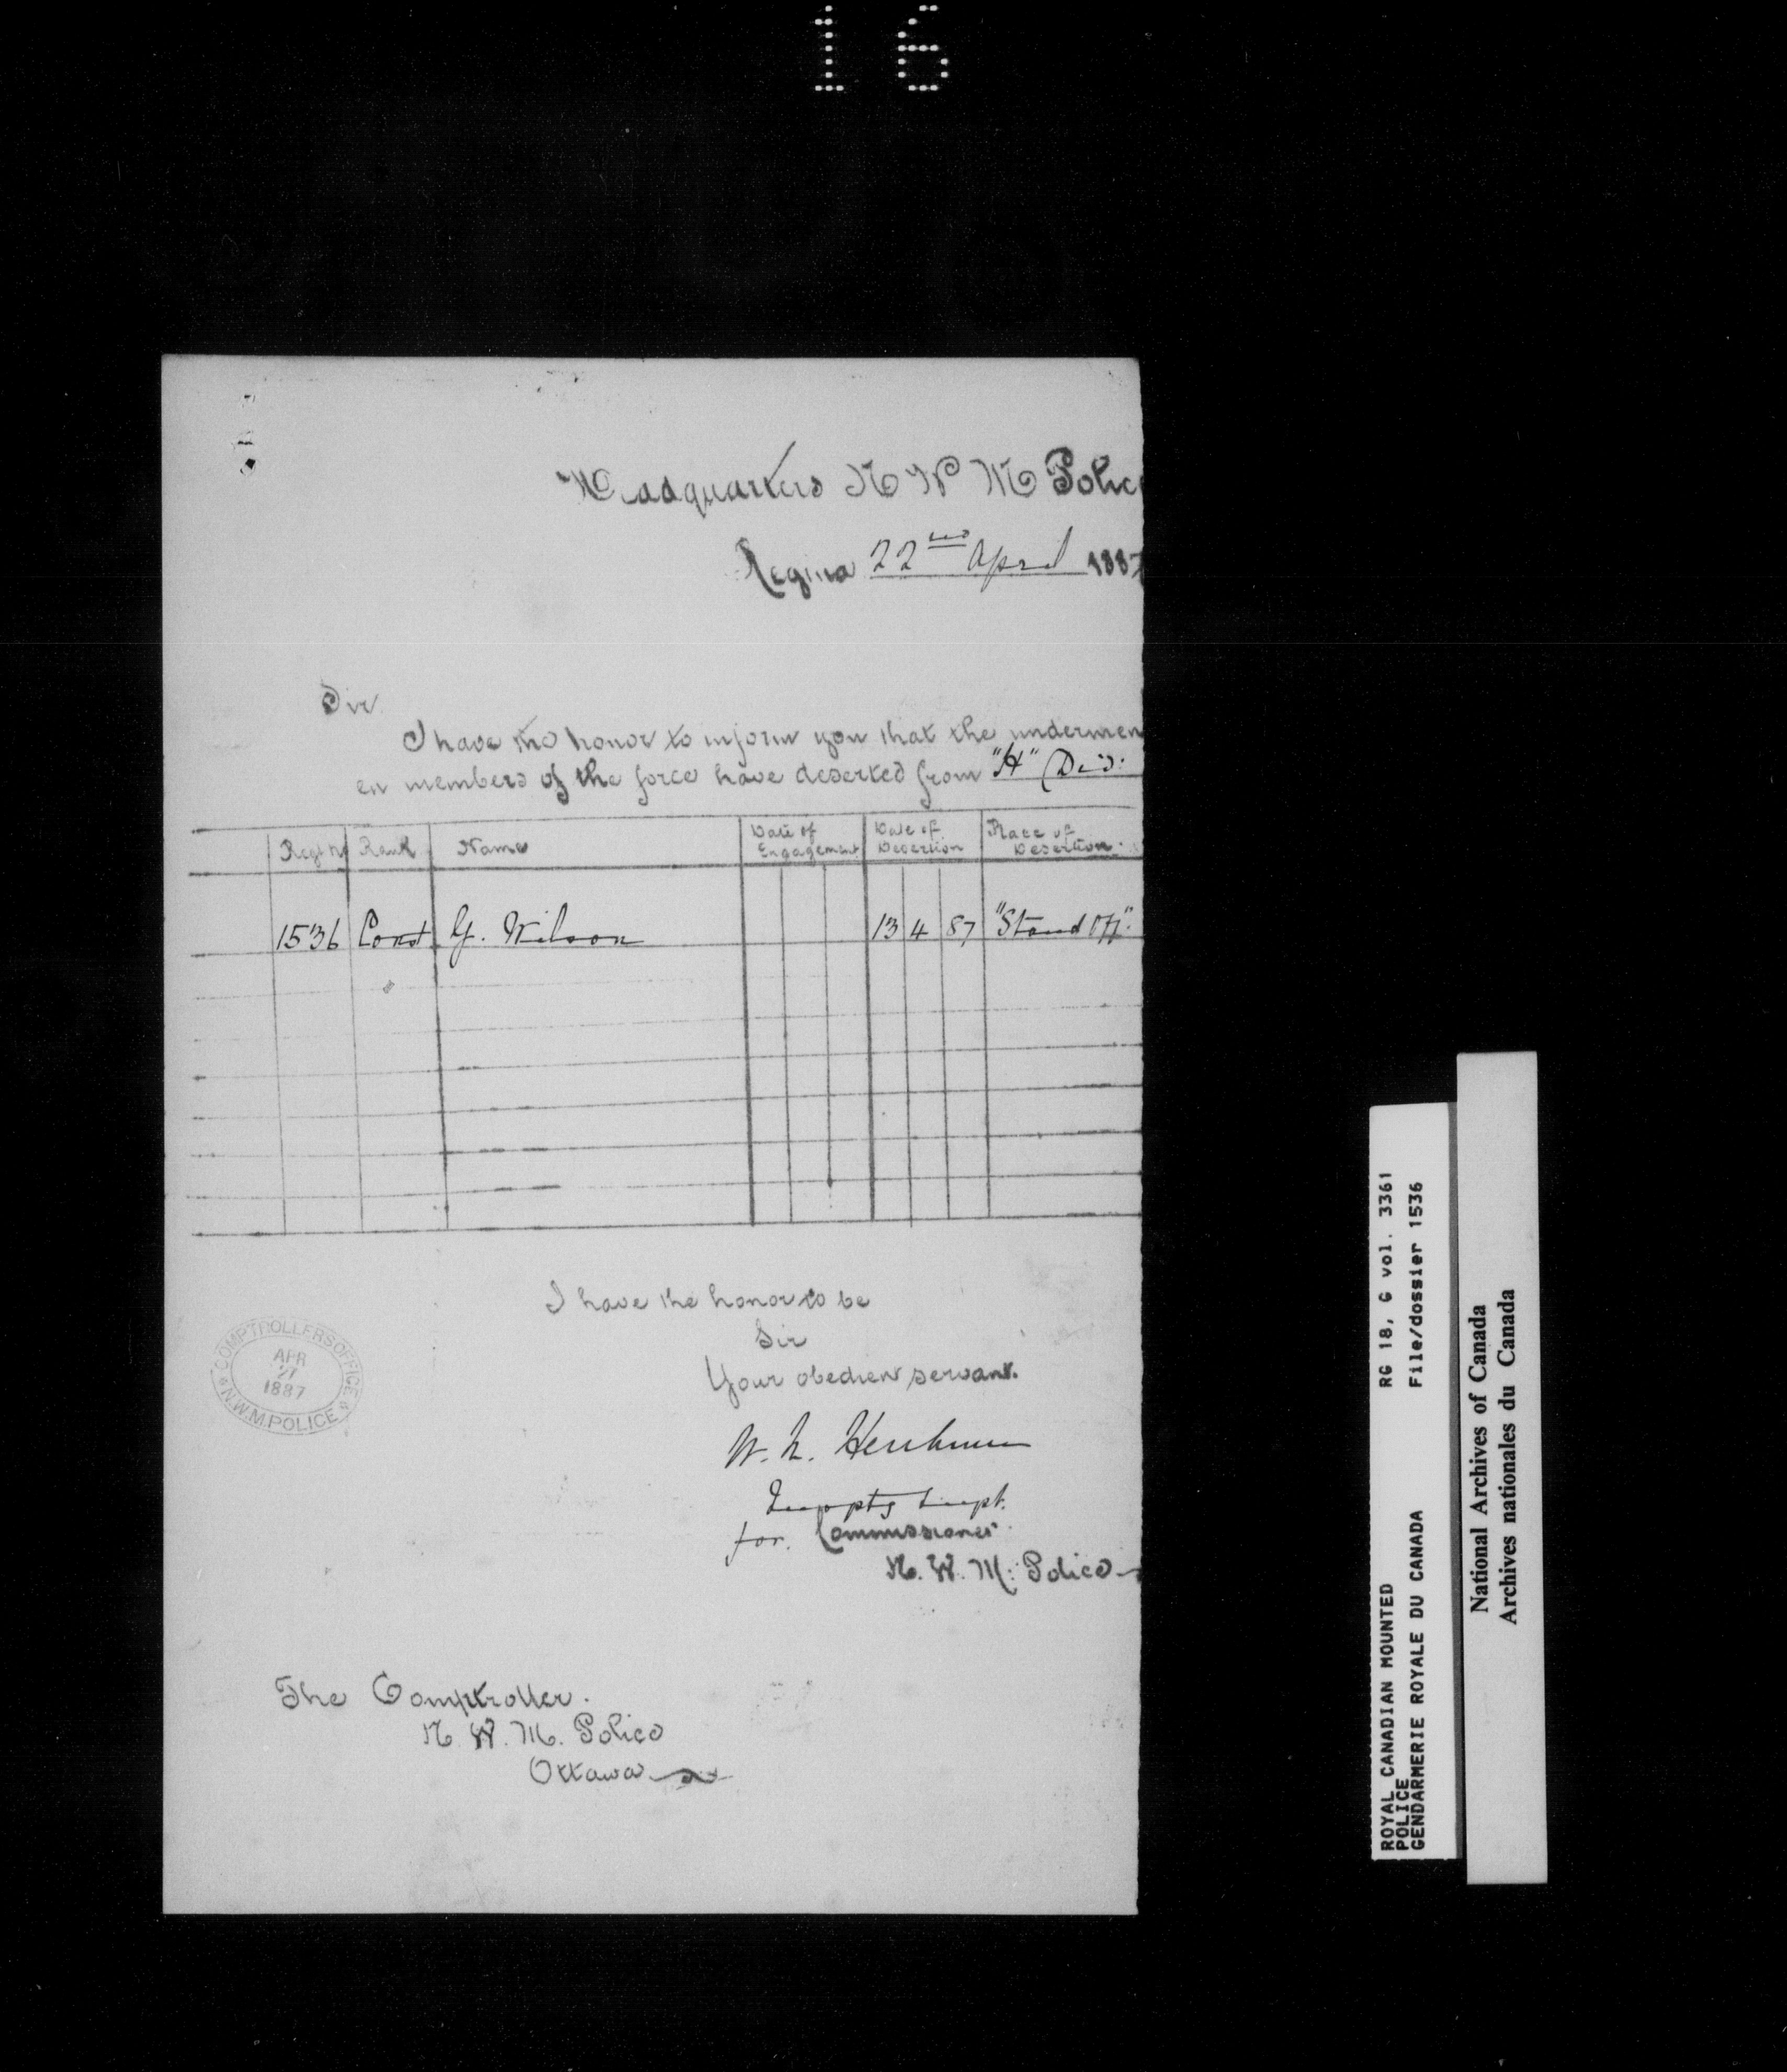 16
Headquarters N W M Polic
Regina 22nd April 1887
Sir
I have the honor to inform you that the undermen
en members of the force have deserted from "H" Div:
Regt No Rank Name Date of Engagement Date of Desertion Place of Desertion
1536 Const G. Wilson 13 4 87 "Stand Off".
I have the honor to be
Sir
Your obedien servant.
W. M. Herchmer
Supt.
for. Commissioner
N. W. M. Police
COMPTROLLERS OFFICE
APR
27
1887
N.W.M.POLICE
The Comptroller.
N. W. M. Police
Ottawa
ROYAL CANADIAN MOUNTED RG 18, G vol. 3361
POLICE
GENDARMERIE ROYALE DU CANADA File/dossier 1536
National Archives of Canada
Archives nationales du Canada